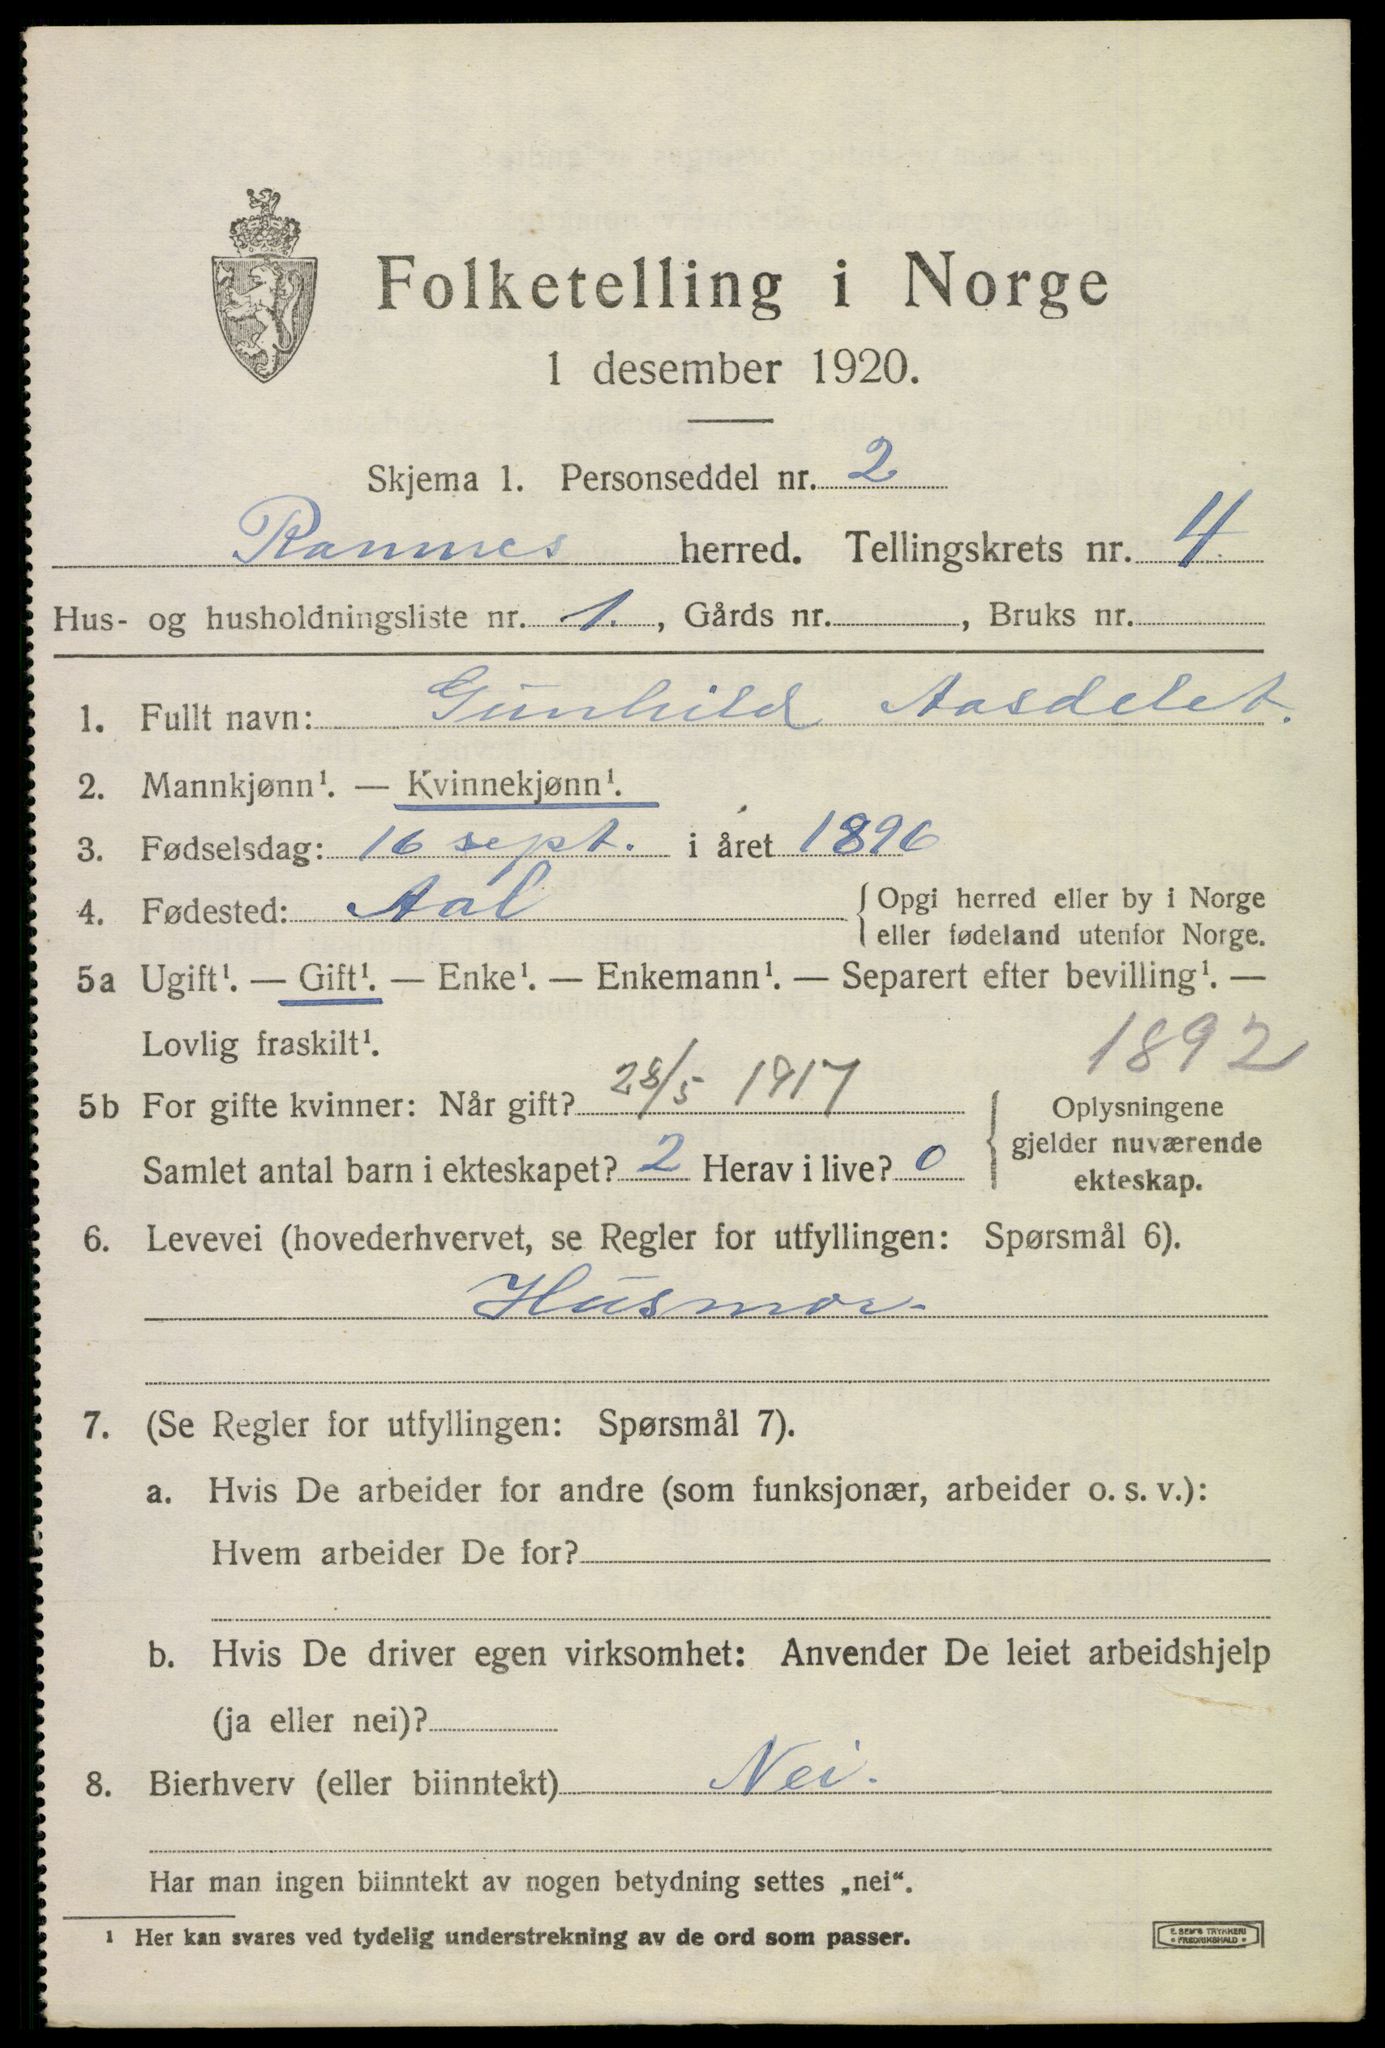 Folketelling i Norge
1 desember 1920.
Skjema 1. Personseddel nr. 2
Ramnes herred. Tellingskrets nr. 4
Hus- og husholdningsliste nr. 1. , Gårds nr. , Bruks nr.
1. Fullt navn: Gunhild Aasdelet.
2. Mannkjønn¹. — Kvinnekjønn¹.
3. Fødselsdag: 16 sept. i året 1896
4. Fødested: Aal { Opgi herred eller by i Norge
eller fødeland utenfor Norge.
5a Ugift¹. — Gift¹. — Enke¹. — Enkemann¹. — Separert efter bevilling¹. —
Lovlig fraskilt¹. 1892
5b For gifte kvinner: Når gift? 28/5 1917 { Oplysningene
gjelder nuværende
Samlet antal barn i ekteskapet? 2 Herav i live? 0 ekteskap.
6. Levevei (hovederhvervet, se Regler for utfyllingen: Spørsmål 6).
Husmor.
7. (Se Regler for utfyllingen: Spørsmål 7).
a. Hvis De arbeider for andre (som funksjonær, arbeider o. s. v.):
Hvem arbeider De for?
b. Hvis De driver egen virksomhet: Anvender De leiet arbeidshjelp
(ja eller nei)?
8. Bierhverv (eller biinntekt) Nei.
Har man ingen biinntekt av nogen betydning settes „nei“.
¹ Her kan svares ved tydelig understrekning av de ord som passer.
E. SEM'S TRYKKERI
• FREDRIKSHALD •